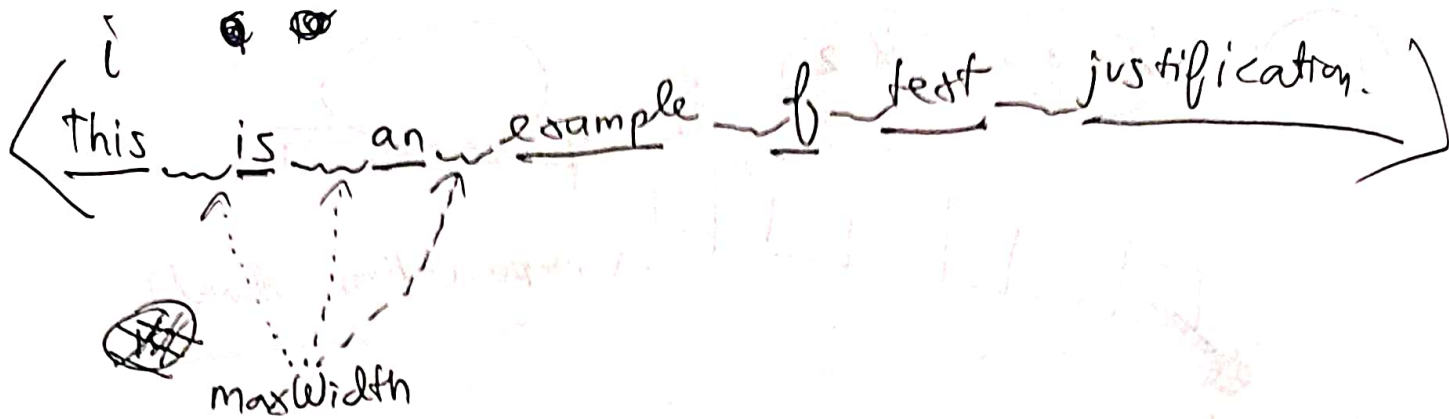 i
this is an example of text justification.
maxWidth